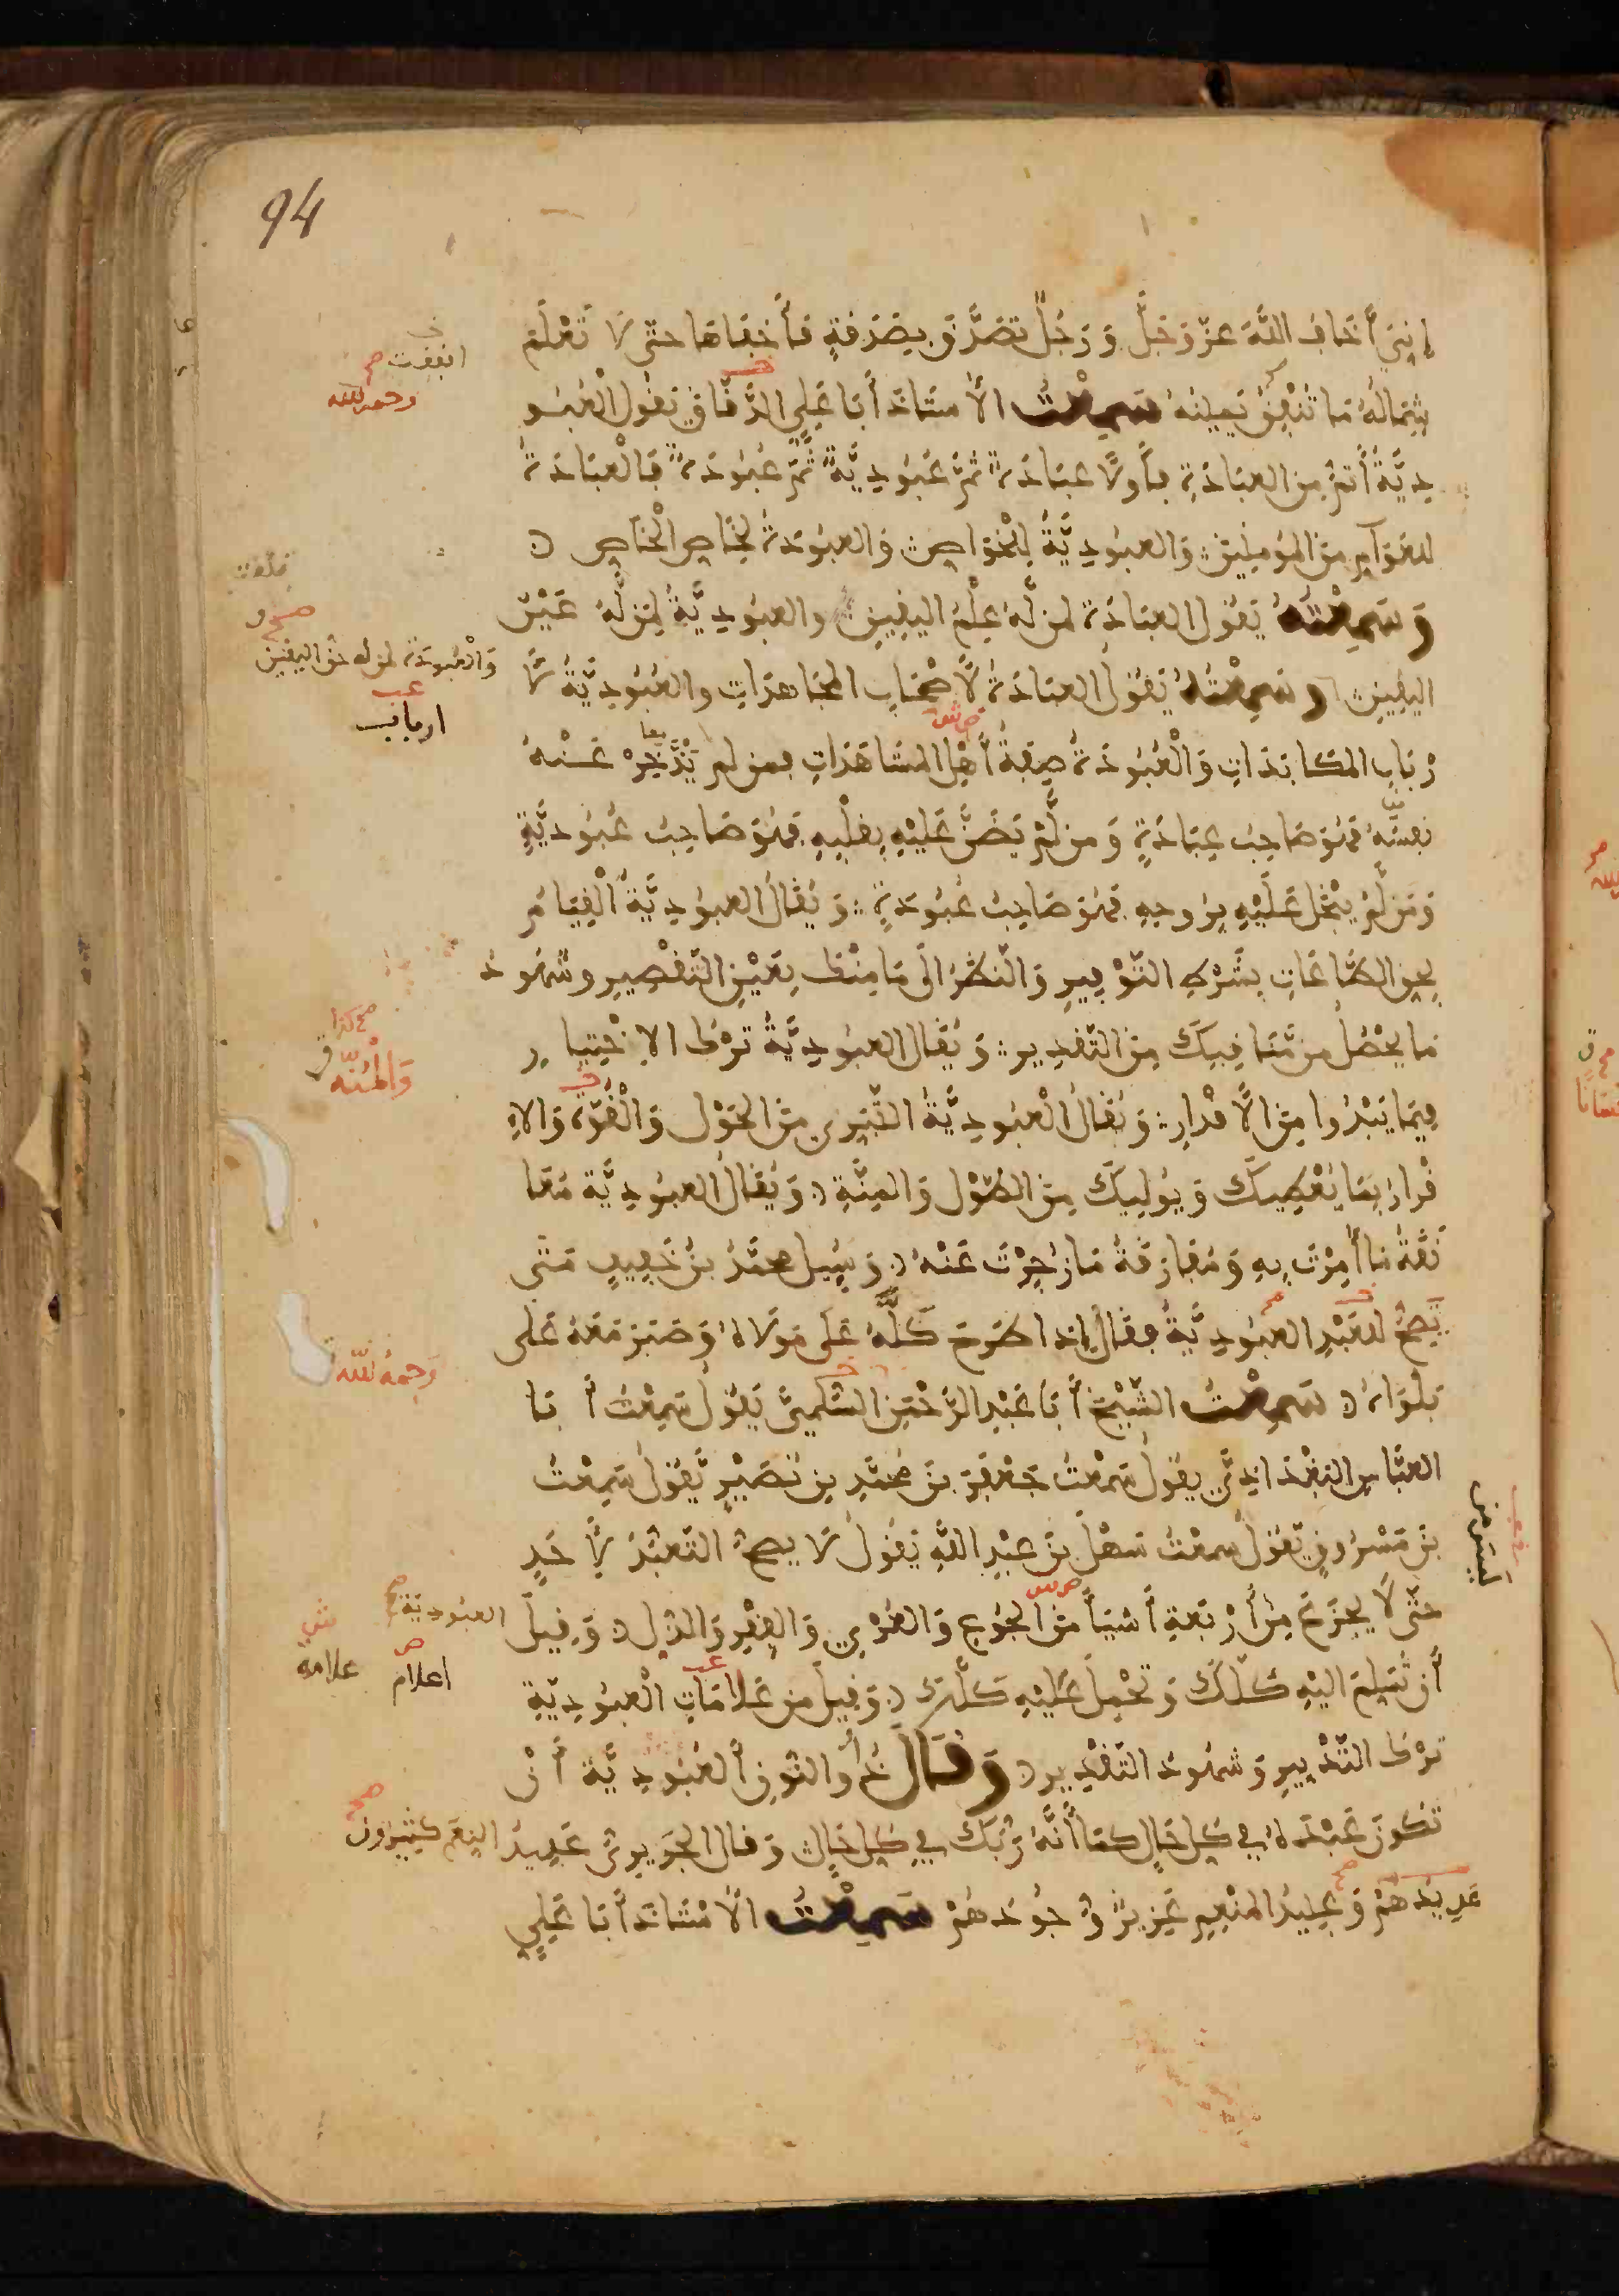 94
إِنِّي أَخَافُ اللَّهَ عَزَّ وَجَلَّ وَرَجُلٌ تَصَدَّقَ بِصَدَقَةٍ فَأَخْفَاهَا حَتَّى لَا تَعْلَمَ
شِمَالُهُ مَا تُنْفِقُ يَمِينُهُ سَمِعْتُ الْأُسْتَاذَ أَبَا عَلِيٍّ الدَّقَّاقَ يَقُولُ الْعُبُو
دِيَّةُ أَتَمُّ مِنَ الْعِبَادَةِ فَأَوَّلًا عِبَادَةٌ ثُمَّ عُبُودِيَّةٌ ثُمَّ عُبُودَةٌ فَالْعِبَادَةُ
لِلْعَوَامِّ مِنَ الْمُؤْمِنِينَ وَالْعُبُودِيَّةُ لِلْخَوَاصِّ وَالْعُبُودَةُ لِخَاصِّ الْخَاصِّ
وَسَمِعْتُهُ يَقُولُ الْعِبَادَةُ لِمَنْ لَهُ عِلْمُ الْيَقِينِ وَالْعُبُودِيَّةُ لِمَنْ لَهُ عَيْنُ
الْيَقِينِ وَسَمِعْتُهُ يَقُولُ الْعِبَادَةُ لِأَصْحَابِ الْمُجَاهَدَاتِ وَالْعُبُودِيَّةُ لِأَ
رْبَابِ الْمُكَابَدَاتِ وَالْعُبُودَةُ صِفَةُ أَهْلِ الْمُشَاهَدَاتِ فَمَنْ لَمْ يَدَّخِرْ عَنْهُ
نَفْسَهُ فَهُوَ صَاحِبُ عِبَادَةٍ وَمَنْ لَمْ يَضَنَّ عَلَيْهِ بِقَلْبِهِ فَهُوَ صَاحِبُ عُبُودِيَّةٍ
وَمَنْ لَمْ يَبْخَلْ عَلَيْهِ بِرُوحِهِ فَهُوَ صَاحِبُ عُبُودَةٍ وَيُقَالُ الْعُبُودِيَّةُ الْقِيَامُ
بِحَقِّ الطَّاعَاتِ بِشَرْطِ التَّوْفِيرِ وَالنَّظَرُ إِلَى مَا مِنْكَ بِعَيْنِ التَّقْصِيرِ وَشُهُودُ
مَا يَحْصُلُ مِنْ مَنَاقِبِكَ مِنَ التَّقْدِيرِ وَيُقَالُ الْعُبُودِيَّةُ تَرْكُ الِاخْتِيَارِ
فِيمَا يَبْدُوا مِنَ الْأَقْدَارِ وَيُقَالُ الْعُبُودِيَّةُ التَّبَرِي مِنَ الْحَوْلِ وَالْقُوَّةِ وَالْإِ
قْرَارُ بِمَا يُعْطِيكَ وَيُولِيكَ مِنَ الطَّوْلِ وَالْمِنَّةِ وَيُقَالُ الْعُبُودِيَّةُ مُعَا
نَقَةُ مَا أُمِرْتَ بِهِ وَمُفَارَقَةُ مَا زُجِرْتَ عَنْهُ وَسُئِلَ مُحَمَّدُ بْنُ خَفِيفٍ مَتَى
يَصِحُّ لِلْعَبْدِ الْعُبُودِيَّةُ فَقَالَ إِذَا طَرَحَ كَلَّهُ عَلَى مَوْلَاهُ وَصَبَرَ مَعَهُ عَلَى
بَلْوَاهُ سَمِعْتُ الشَّيْخَ أَبَا عَبْدِ الرَّحْمَنِ السُّلَمِيَّ يَقُولُ سَمِعْتُ أَبَا
الْعَبَّاسِ الْبَغْدَادِيَّ يَقُولُ سَمِعْتُ جَعْفَرَ بْنَ مُحَمَّدِ بْنِ نُصَيْرٍ يَقُولُ سَمِعْتُ
بْنَ مَسْرُوقٍ يَقُولُ سَمِعْتُ سَهْلَ بْنَ عَبْدِ اللَّهِ يَقُولُ لَا يَصِحُّ التَّعَبُّدُ لِأَحَدٍ
حَتَّى لَا يَجْزَعَ مِنْ أَرْبَعَةِ أَشْيَاءَ مِنَ الْجُوعِ وَالْعُرْيِ وَالْفَقْرِ وَالذُّلِّ وَقِيلَ
أَنْ تُسْلِمَ إِلَيْهِ كُلَّكَ وَتَحْمِلَ عَلَيْهِ كَلَّكَ وَقِيلَ مِنْ عَلَامَاتِ الْعُبُودِيَّةِ
تَرْكُ التَّدْبِيرِ وَشُهُودُ التَّقْدِيرِ وَقَالَ ذُو النُّونِ الْعُبُودِيَّةُ أَنْ
تَكُونَ عَبْدَهُ فِي كُلِّ حَالٍ كَمَا أَنَّهُ رَبُّكَ فِي كُلِّ حَالٍ وَقَالَ الْجَرِيرِيُّ عَبِيدُ النِّعَمِ كَثِيرُونَ
عَدِيدُهُمْ وَعَبِيدُ الْمُنْعِمِ عَزِيزٌ وُجُودُهُمْ سَمِعْتُ الْأُسْتَاذَ أَبَا عَلِيٍّ
انفقت
رحمه الله
وَالْعُبُودَةُ لِمَنْ لَهُ حَقُّ الْيَقِينِ
ارباب
وَالْمُنَّة
رَحِمَهُ اللَّهُ
العبودية
اعلام
علامة